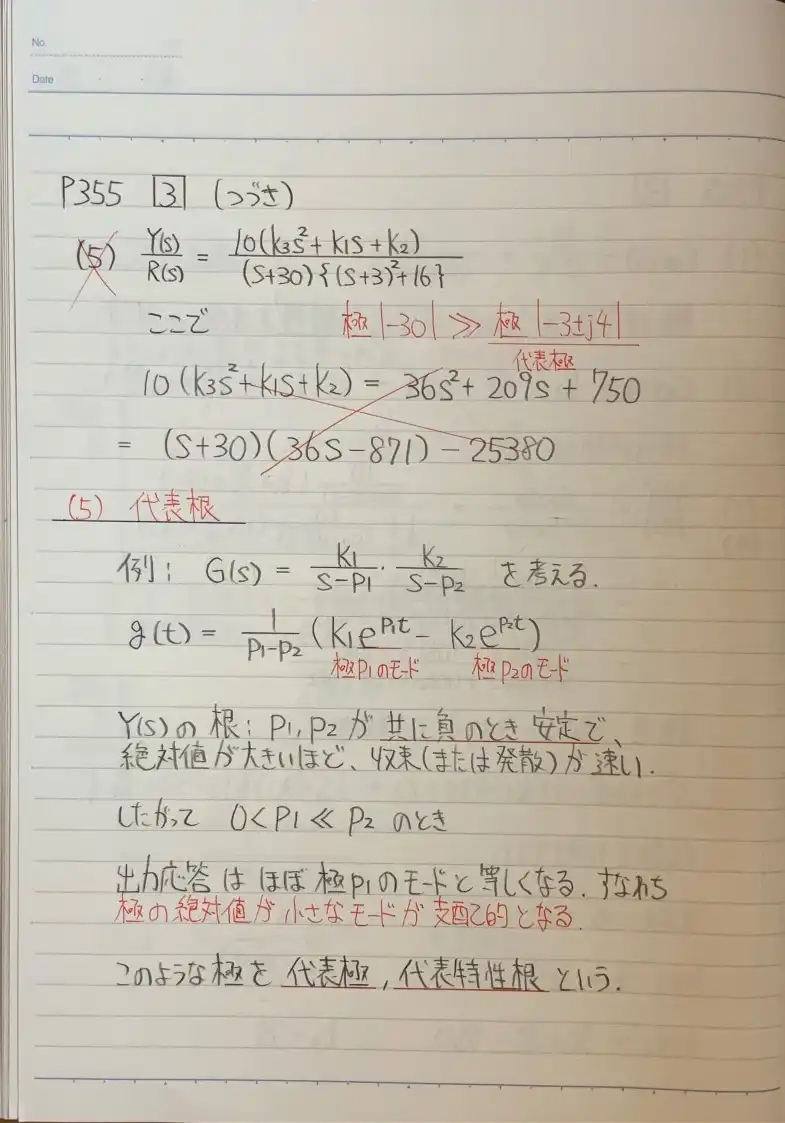 No.
Date
P355 [3] (つづき)
(5) Y(s)/R(s) = 10(k₃s²+k₁s+k₂)/(s+30){(s+3)²+16}
ここで 極|-30| ≫ 極|-3±j4|
代表極
10(k₃s²+k₁s+k₂) = 36s²+209s+750
= (s+30)(36s-871)-25380
(5) 代表根
例: G(s) = K₁/(s-p₁)・K₂/(s-p₂) を考える.
g(t) = 1/(p₁-p₂) (K₁e^{p₁t} - K₂e^{p₂t})
極p₁のモード 極p₂のモード
Y(s)の根: p₁, p₂が共に負のとき安定で、
絶対値が大きいほど、収束(または発散)が速い.
したがって 0<p₁≪p₂ のとき
出力応答はほぼ極p₁のモードと等しくなる. すなわち
極の絶対値が小さなモードが支配的となる.
このような極を代表極, 代表特性根という.